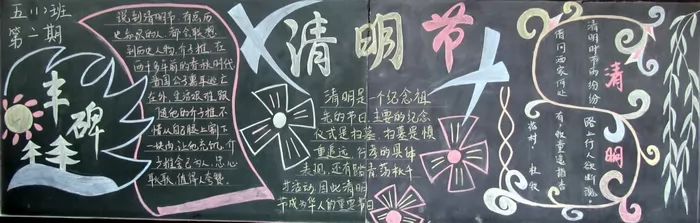 五(1)班
第二期
丰碑
说到清明节,有点历
史知识的人,都会联想
到历史人物介子推,在
两千多年前的春秋时代
晋国公子重耳逃亡
在外,生活艰难,跟
随他的介子推不
惜从自己腿上割下
一块肉让他充饥,介
子推舍己为人,忠心
耿耿,值得人夸赞。
清明节
清明是一个纪念祖
先的节日,主要的纪念
仪式是扫墓,扫墓是慎
重追远、行孝的具体
表现,还有踏青荡秋千
等活动,因此清明
节成为华人的重要节日
清明
清明时节雨纷纷
路上行人欲断魂。
借问酒家何处
有,牧童遥指杏
花村。 杜牧